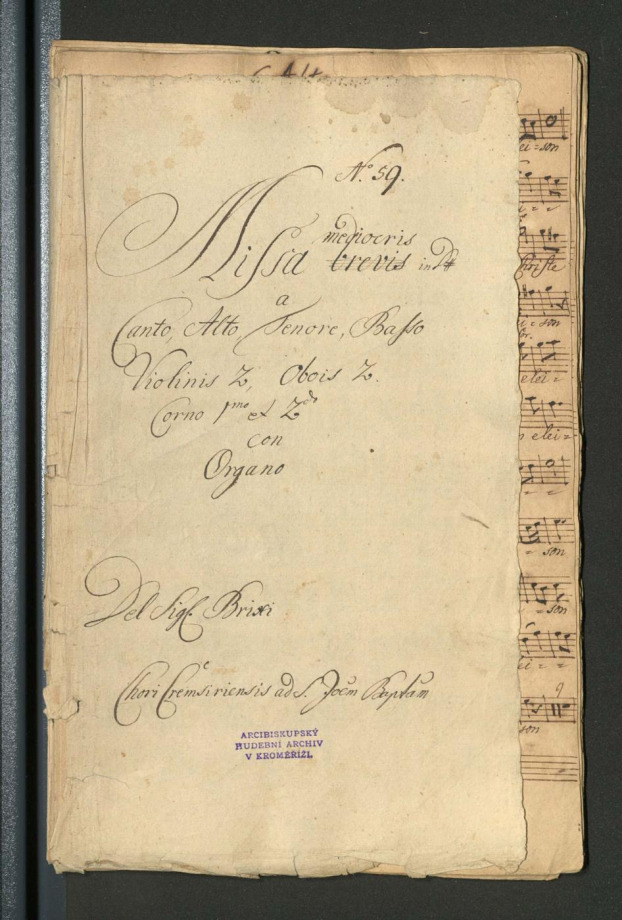 No. 59.
mediocris
Missa brevis in D#
a
Canto, Alto, Tenore, Basso
Violinis 2, Obois 2.
Corno 1mo et 2do
con
Organo
Del Sigl. Brixi
Chori Cremsiriensis ad S. Joem Baptam
ARCIBISKUPSKÝ
HUDEBNÍ ARCHIV
V KROMĚŘÍŽI.
ei=son
Christe
i=son
elei=
elei=
son
son
ei = =
son